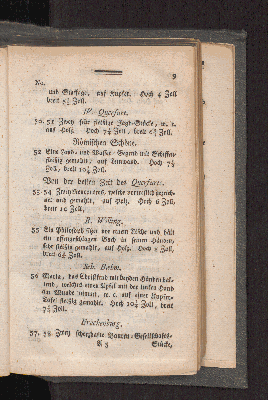 9
No.
und Staffage, auf Kupfer. Hoch 4 Zoll
breit 5¼ Zoll.
W. Querfurt.
50. 51 Zwey sehr fleißige Jagd-Stücke, w. o.
auf Holz. Hoch 7½ Zoll, breit 6¾ Zoll.
Römischen Schöne.
52 Eine Land- und Wasser-Gegend mit Schiffen
fleißig gemahlt, auf Leinwand. Hoch 7½
Zoll, breit 10½ Zoll.
Von der besten Zeit des Querfurt.
53. 54 Zwey
und gemahlt, auf Holz. Hoch 6 Zoll
breit 10 Zoll.
55 Ein Philosoph sitzt vor einem Tische und hält
ein aufgeschlagen Buch in seinen Händen,
sehr fleißig gemahlt, auf Holz. Hoch 8 Zoll,
breit 6¾ Zoll.
Seb. Behm.
56 Maria, das Christkind mit beyden Händen hal-
tend, welches einen Apfel mit der linken Hand
am Munde nimmt, w. o. auf einer Kupfer-
Tafel fleißig gemahlt. Hoch 10¼ Zoll, breit
7¾ Zoll.
Brackenburg.
57. 58 Zwey scherzhafte Bauern-Gesellschafts-
A 5 Stücke,